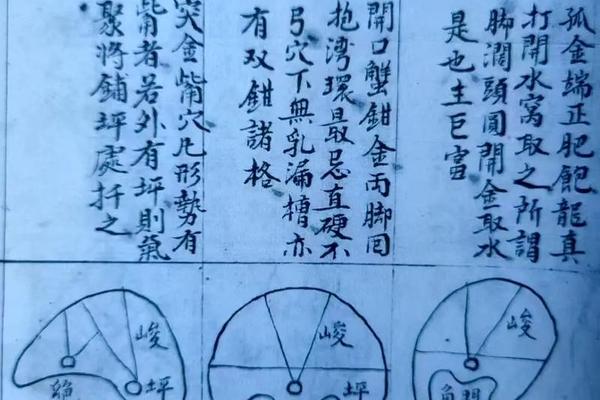 孤金端正肥飽龍真
打開水窩取之所謂
脚濶頭圓開金取水
是也主巨富
開口蟹鉗金両脚回
抱湾環最忌直硬不
弓穴下無乳漏槽亦
有双鉗諸格
突金觜穴凡形勢有
觜者若外有坪則氣
聚將鋪坪處扦之
峻
峻
坪
峻
坪